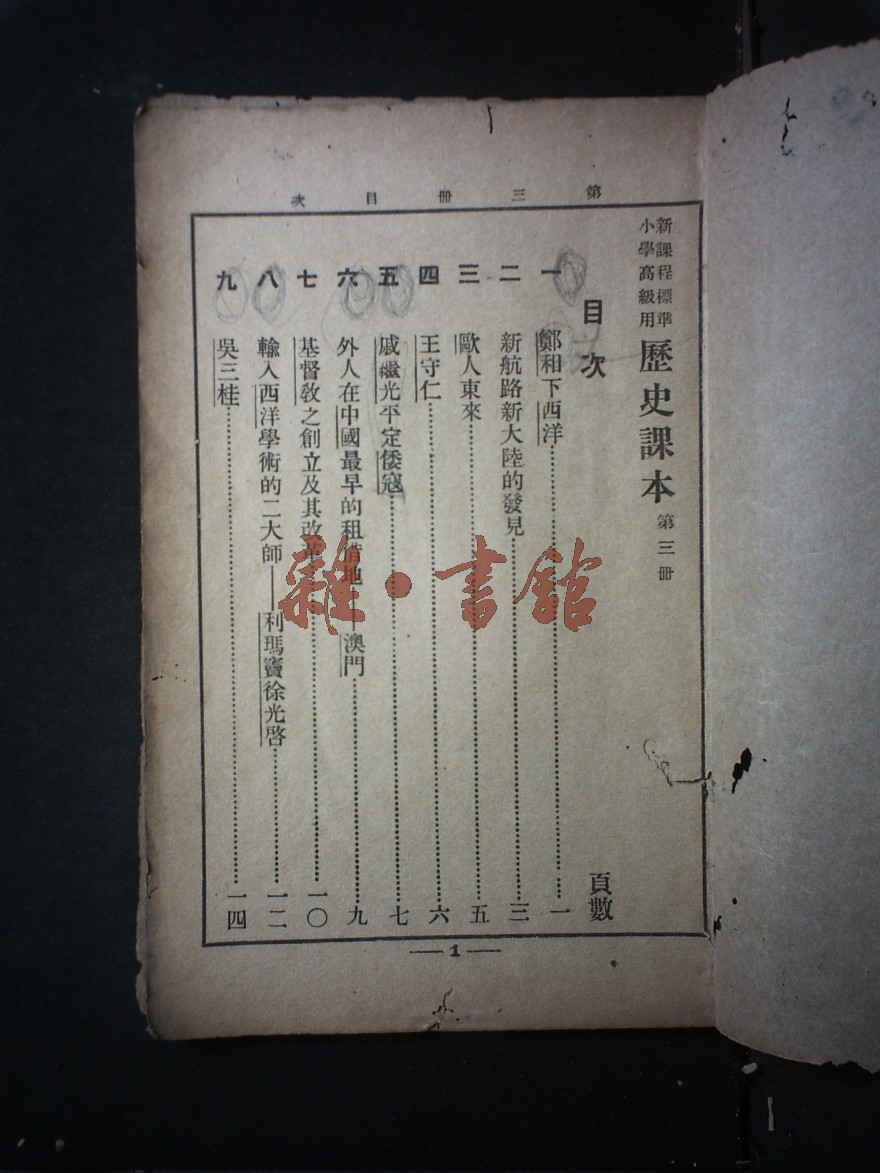 第三冊目次
新課程標準
小學高級用
歷史課本 第三冊
目次 頁數
一 鄭和下西洋 一
二 新航路新大陸的發見 三
三 歐人東來 五
四 王守仁 六
五 戚繼光平定倭寇 七
六 外人在中國最早的租借地——澳門 九
七 基督教之創立及其改革 一〇
八 輸入西洋學術的二大師——利瑪竇徐光啓 一二
九 吳三桂 一四
— 1 —
雜·書館